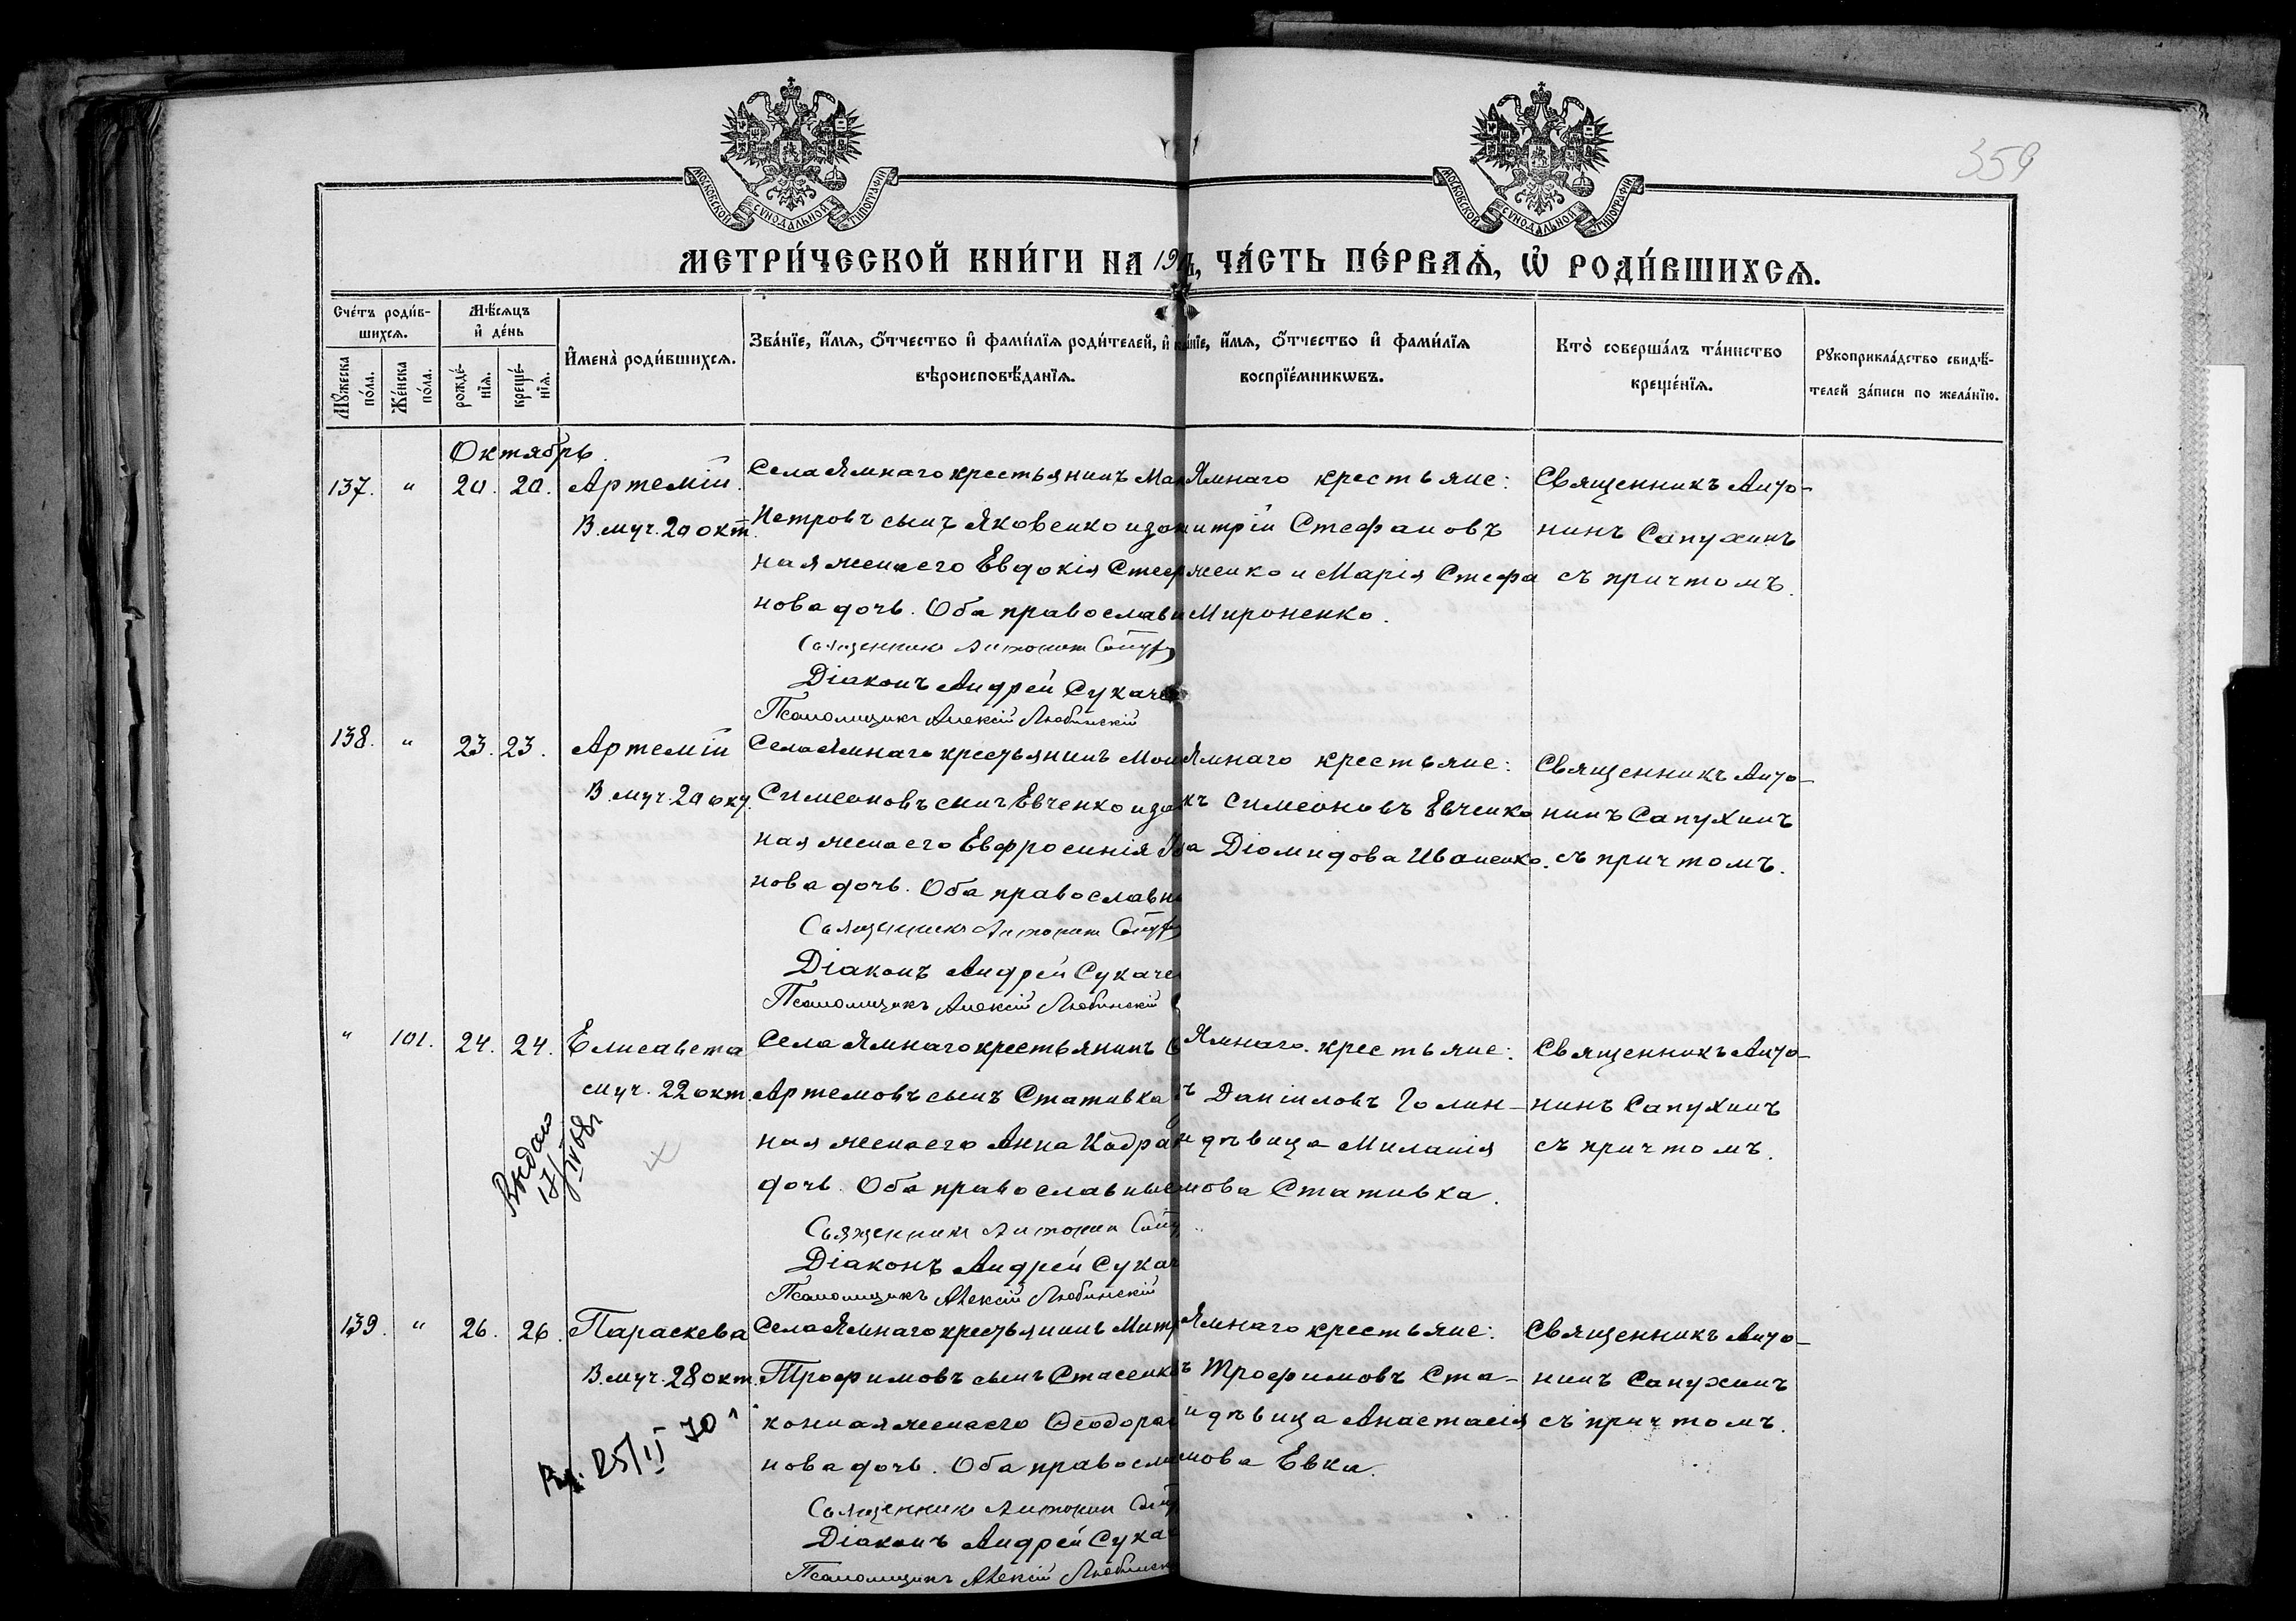 359
МОСКОВСКОЙ СѴНОДАЛЬНОЙ ТИПОГРАФІИ
МОСКОВСКОЙ СѴНОДАЛЬНОЙ ТИПОГРАФІИ
МЕТРИ́ЧЕСКОЙ КНИ́ГИ НА 19 ЧА́СТЬ ПЕ́РВАѦ, Ѽ РОДИ́ВШИХСѦ.
Сче́тъ роди́в-
шихсѧ.
Мꙋ́жеска по́ла.
Же́нска по́ла.
Мѣ́сѧцъ
и҆ де́нь
рожде́-
нїѧ.
креще́-
нїѧ.
И҆мена̀ роди́вшихсѧ.
Зва́нїе, и҆́мѧ, ѻ҆́тчество и҆ фами́лїѧ роди́телей, и҆
вѣроисповѣ́данїѧ.
зва́нїе, и҆́мѧ, ѻ҆́тчество и҆ фами́лїѧ
воспрїе́мникѡвъ.
Кто̀ соверша́лъ та́инство
креще́нїѧ.
Рꙋкоприкла́дство свидѣ́-
телей за́писи по жела́нїю.
Октябрь.
137. " 20. 20. Артемій.
В. муч. 20 окт.
Села Ямнаго крестьянинъ
Петровъ сынъ Яковенко и
ная жена его Евдокія
нова дочь. Оба православ
Священникъ Антонин
Діаконъ Андрей Сукаче
Псаломщикъ Алексій Любинскій
Ямнаго крестьяне:
итрій Стефановъ
женко и Марія Стефа
Мироненко.
Священникъ Анто-
нинъ Сапухинъ
съ причтомъ.
138. " 23. 23. Артемій
В. муч. 20 окт.
Села Ямнаго крестьянинъ
Симеоновъ сынъ Евченко и
ная жена его Евфросинія
нова дочь. Оба православн
Священникъ Антонин
Діаконъ Андрей Сукаче
Псаломщикъ Алексій Любинскій
Ямнаго крестьяне:
къ Симеоновъ Евченко
а Діомидова Иваненко.
Священникъ Анто-
нинъ Сапухинъ
съ причтомъ.
" 101. 24. 24. Елисавета
муч. 22 окт.
Выдан
17/IV 68 г
Села Ямнаго крестьянинъ
Артемовъ сынъ Стативка
ная жена его Анна
дочь. Оба православные
Священникъ Антонин
Діаконъ Андрей Сукач
Псаломщикъ Алексій Любинскій
Ямнаго крестьяне:
ъ Даніиловъ Голин-
и дѣвица Миланія
мова Стативка.
Священникъ Анто-
нинъ Сапухинъ
съ причтомъ.
139. " 26. 26. Параскева
В. муч. 28 окт.
Вы. 25/II 70 г
Села Ямнаго крестьянинъ Митр
Трофимовъ сынъ Стасенко
конная жена его Ѳеодора
нова дочь. Оба правосла
Священникъ Антонин
Діаконъ Андрей Сука
Псаломщикъ Алексій Любинск
Ямнаго крестьяне:
ъ Трофимовъ Ста-
и дѣвица Анастасія
мова Евка.
Священникъ Анто-
нинъ Сапухинъ
съ причтомъ.